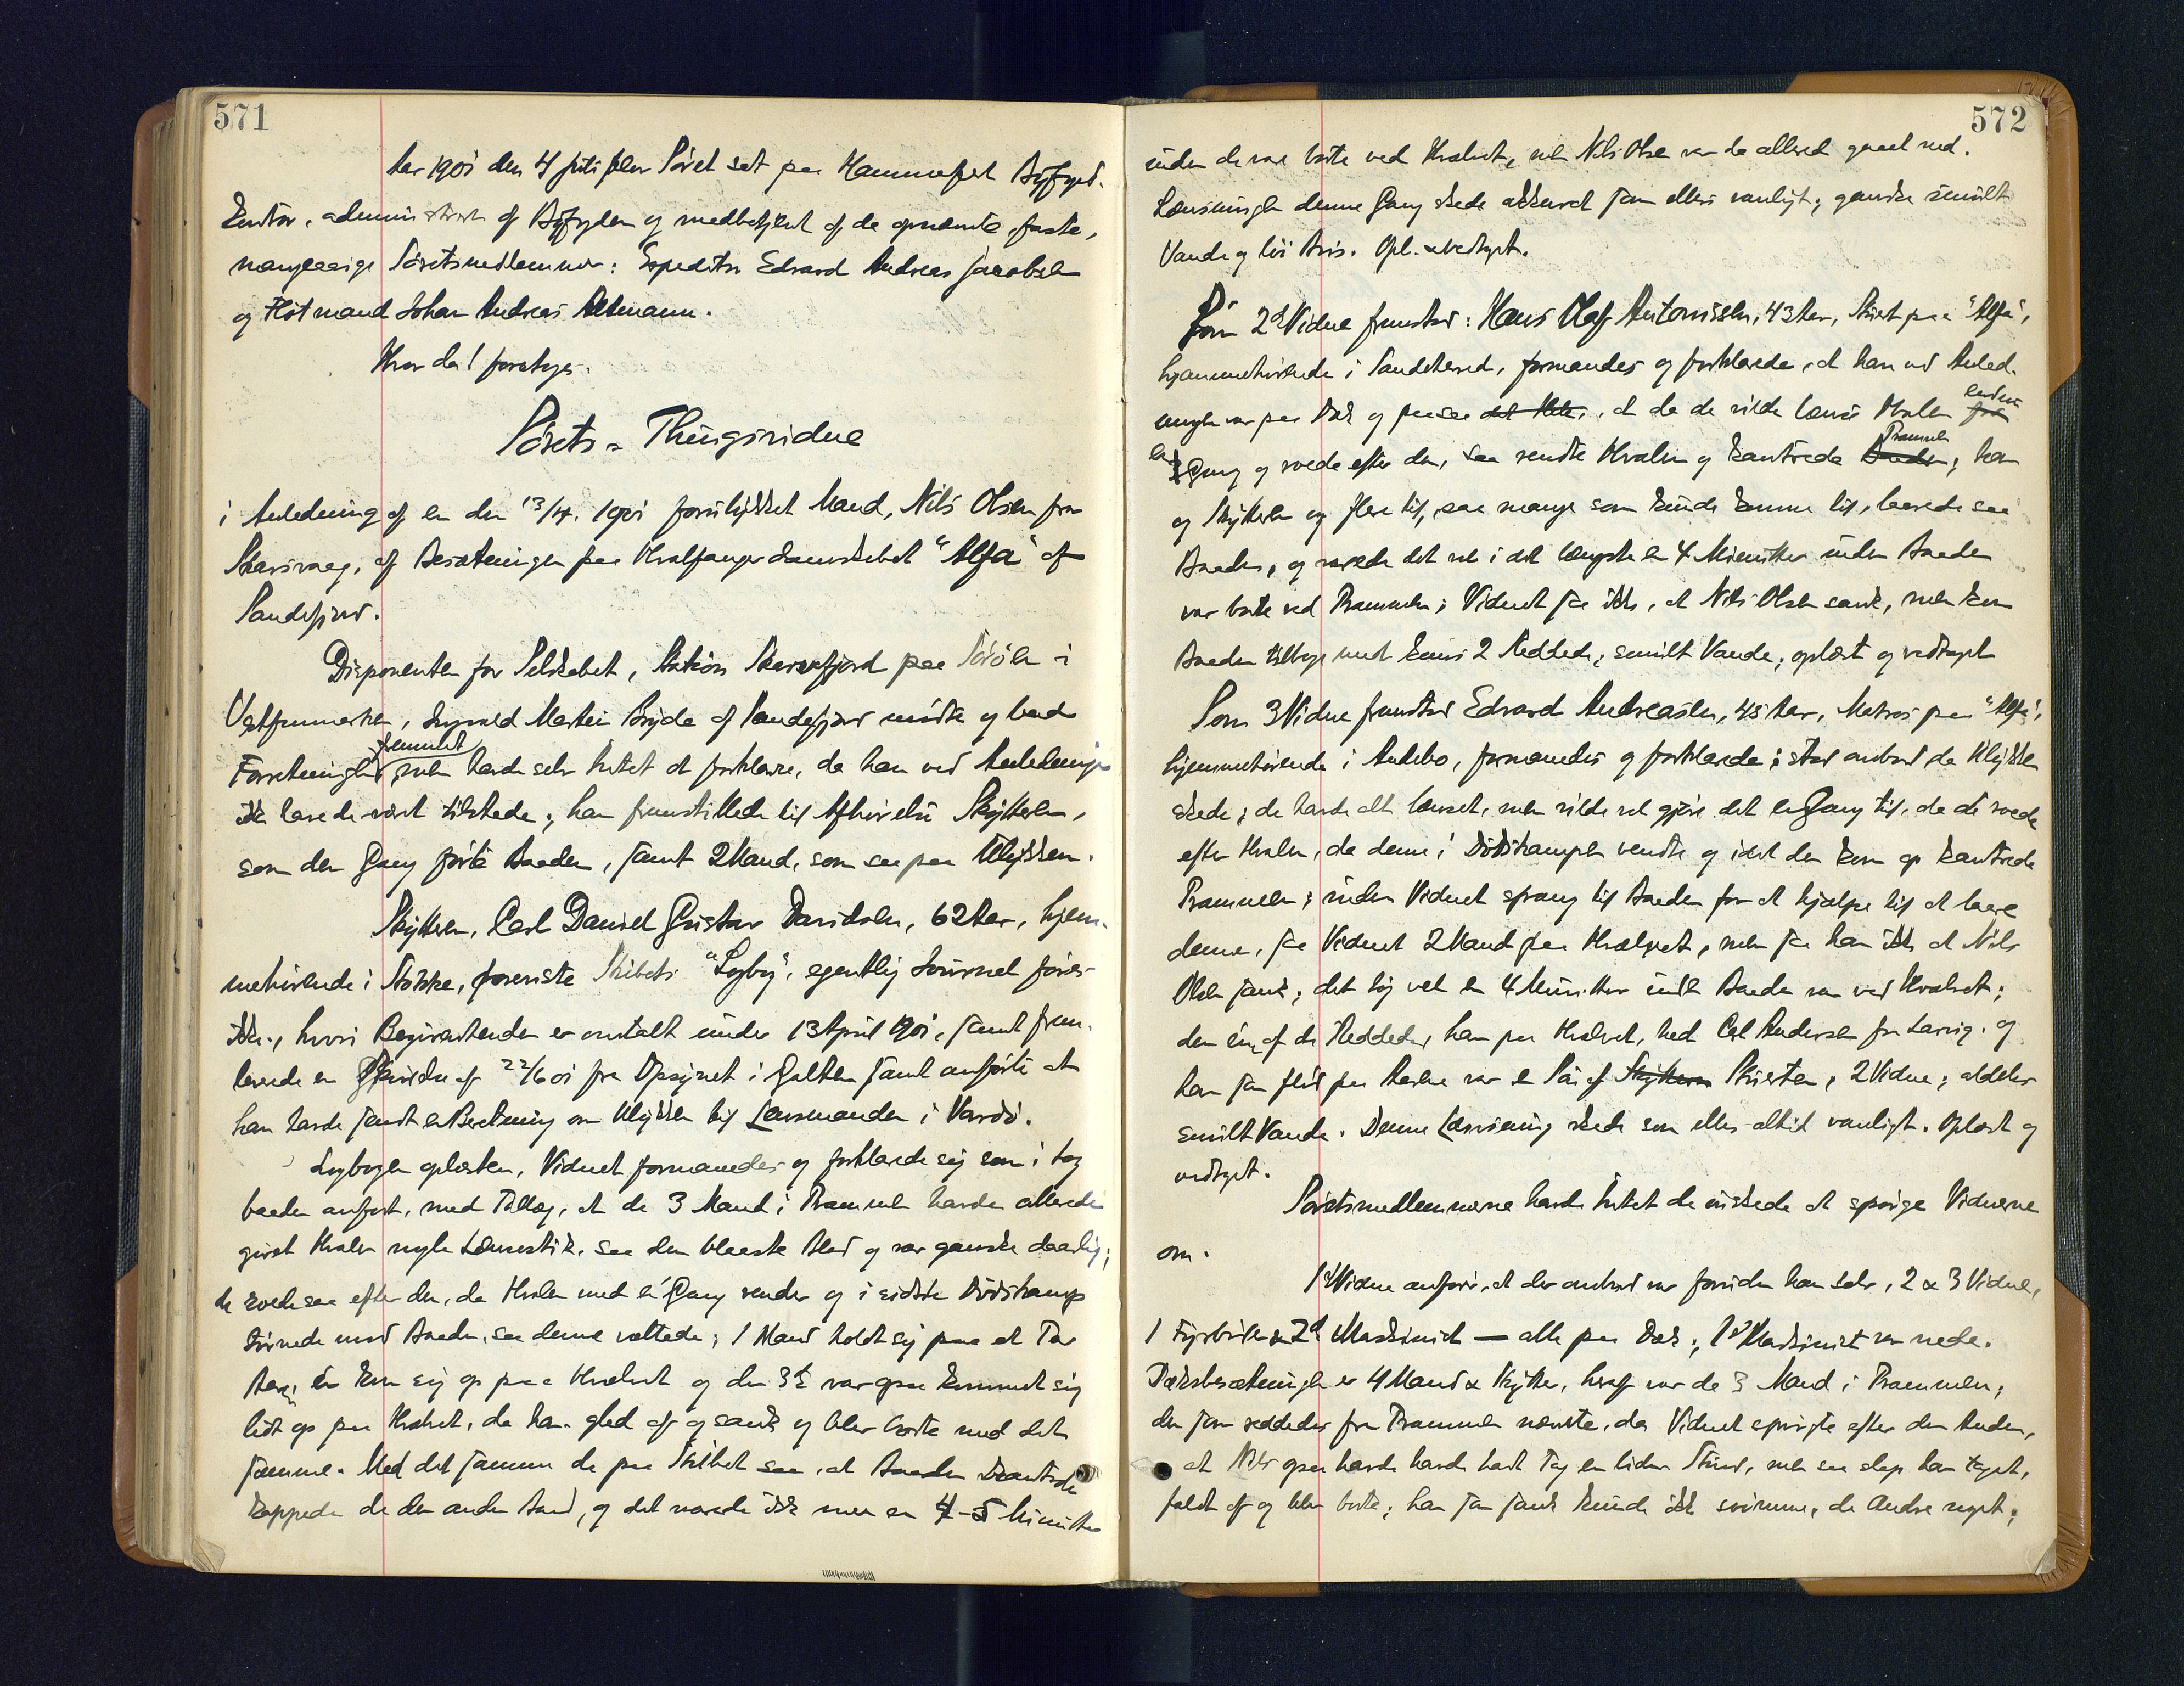 571
Aar 1901 den 4 Juli blev Söret sat paa Hammerfest Byfogd-
kontor, administreret af Byfogden og medbetjent af de opnævnte, faste,
mangeaarige Söretsmedlemmer: Expeditør Edvard Andreas Jacobsen
og Flötmand Johan Andreas Altmann.
Hvor da! foretoges.
Sörets-Thingsvidne
i Anledning af en den 13/4. 1901 forulykket Mand, Nils Olsen fra
Skarsvaag, af Besætningen paa Hvalfangerdampskibet "Alfa" af
Sandefjord.
Disponenten for Selskabet, Station Skarvefjord paa Söröen i
Vestfinmarken, Ingvald Martin Bryde af Sandefjord mödte og bad
fremmet
Forretningen men havde selv Intet at forklare, da han ved Anledningen
ikke havde vært tilstede; han fremstillede til Afhörelse Skytteren,
som den Gang förte Baaden, samt 2 Mand, som saa paa Ulykken.
Skytteren, Carl Daniel Gustav Davidsen, 62 Aar, hjem-
mehörende i Stokke, foreviste Skibets "Logbog", egentlig Journal föres
ikke, hvori Begivenheden er omtalt under 13 April 1901, samt frem-
levede en af 22/6 01 fra Opsynet i Galten samt anförte at
han havde sendt en Beretning om Ulykken til Lensmanden i Vardö.
Logbogen oplæstes, Vidnet formanedes og forklarede sig som i Log
bogen anfört, med Tillæg, at de 3 Mand i Prammen havde allerede
givet Hvalen nogle Lensestik, saa den blæste Blod og var ganske daarlig;
de roede saa efter den, da Hvalen med én Gang vender og i sidste Dödskamp
törnede mod Baaden, saa denne væltede; 1 Mand holdt sig paa et Par
Aarer, én kom sig op paa Hvælvet og den 3de var ogsaa kommet sig
lidt op paa Hvælvet, da han gled af og sank og blev borte med det
samme. Med det samme de paa Skibet saa, at Baaden kantrede
kappede de den anden Baad, og det varede ikke mer en 4-5 Minutter
572
inden de var borte ved Hvælvet, men Nils Olsen var da allerede gaaet ned.
Lensningen denne Gang skede akkurat som ellers vanligt; ganske smult
Vande og lös Bris. Opl. & vedtaget.
Som 2d Vidne fremstod: Hans Olaf Antonissen, 43 Aar, Stuert paa "Alfa",
hjemmehörende i Sandeherred, formanedes og forklarede, at han ved Anled-
endnu
ningen var paa Dæk og paasaa det Hele, at da de vilde lense Hvalen for
Prammen
en Gang og roede efter den, saa vendte Hvalen og kantrede Baaden; han
og Skytteren og flere til, saa mange som kunde komme til, laarede saa
Baaden, og varede det vel i det længste en 4 Minutter inden Baaden
var borte ved Prammen; Vidnet saa ikke, at Nils Olsen sank, men kom
Baaden tilbage med kuns 2 Reddede; smult Vande; oplæst og vedtaget
Som 3 Vidne fremstod Edvard Andreassen, 45 Aar, Matros paa "Alfa",
hjemmehörende i Andebo, formanedes og forklarede: stod ombord da Ulykken
skede; de havde alt lenset, men vilde vel gjöre det en Gang til, da de roede
efter Hvalen, da denne i Dödskampen vendte og idet den kom op kantrede
Prammen; inden Vidnet sprang til Baaden for at hjælpe til at laare
denne, saa Vidnet 2 Mand paa Hvælvet, men saa han ikke at Nils
Olsen sank; det tog vel en 4 Minutter inden Baaden var ved Hvælvet;
den ene af de Reddede, han paa Hvælvet, hed Carl Andersen fra Larvig. og
han som flöd paa Aarene var en Sön af Skytteren Stuerten, 2 Vidne; aldeles
smult Vande. Denne Lensning skede som ellers altid vanligt. Oplæst og
vedtaget.
Söretsmedlemmerne havde Intet de önskede at spörge Vidnerne
om.
1ste Vidne anförer, at der ombord var foruden han selv, 2 & 3 Vidne,
1 Fyrböter & 2d Maskinist — alle paa Dæk; 1ste Maskinist var nede.
Dæksbesætningen er 4 Mand & Skytter, hvoraf var de 3 Mand i Prammen;
den som reddedes fra Prammen nævnte, da Vidnet spurgte efter den Anden,
at Nils ogsaa havde havt Tag en liden Stund, men saa slap han taget,
faldt af og blev borte; han som sank kunde ikke svömme, de Andre noget;